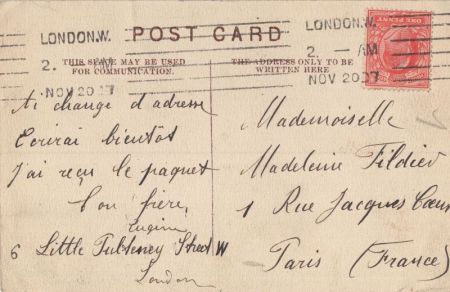 LONDON.W.
2. - AM
NOV 20 07
POST CARD
LONDON.W.
2. - AM
NOV 20 07
THIS SPACE MAY BE USED
FOR COMMUNICATION.
THE ADDRESS ONLY TO BE
WRITTEN HERE
ONE PENNY
Ai changé d'adresse
Ecrirai bientôt
J'ai reçu le paquet
Ton frère,
Eugène
6 Little Pulteney Street W
London
Mademoiselle
Madeleine Fildier
1 Rue Jacques Cœur
Paris (France)